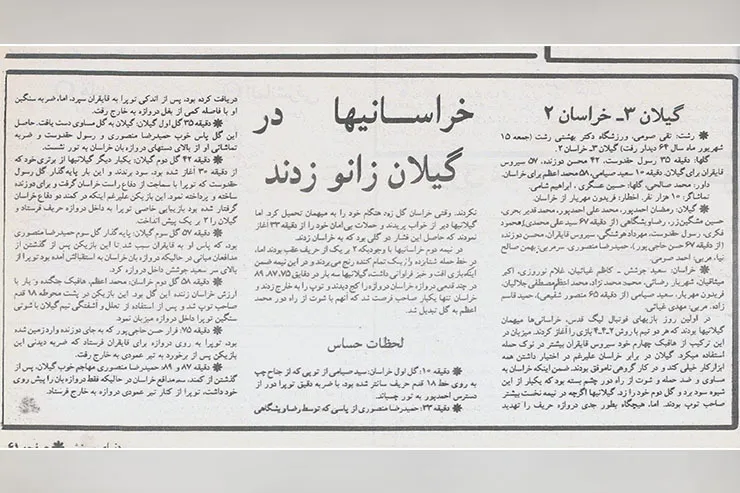 گیلان ۳ـ خراسان ۲
خراسانیها در
گیلان زانو زدند
✱ رشت: تقی صومی، ورزشگاه دکتر بهشتی رشت (جمعه ۱۵
شهریور ماه سال ۶۴ دیدار رفت) گیلان ۳ـ خراسان ۲.
گلها: دقیقه ۳۵ رسول حقدوست، ۴۲ محسن دوزنده، ۵۷ سیروس
قایقران برای گیلان. دقیقه ۱۰ سعید صیامی، ۵۸ محمد اعظم برای خراسان.
داور: محمد صالحی، گلها: حسین عسگری ـ ابراهیم شامی.
تماشاگر: ۱۰ هزار نفر. اخطار: فریدون مهریار از خراسان.
✱ گیلان: رمضان احمدپور، محمد علی احمدپور، محمد قدیر بحری،
حسین مشگین‌زر، رضا ویشگاهی (از دقیقه ۶۷ سید علی محمدی) محمود
فکری، رسول حقدوست، مهرداد هوشنگی، سیروس قایقران، محسن دوزنده
(از دقیقه ۶۷ حسن حاجی پور)، حمیدرضا منصوری. سرمربی: بهمن صالح
نیا. مربی: احمد صومی.
✱ خراسان: سعید جوشش ـ کاظم غیاثیان، غلام نوروزی، اکبر
میثاقیان، شهریار رضائی، محمد محمدزاد، محمد اعظم، مصطفی جلالیان،
فریدون مهریار، سعید صیامی (از دقیقه ۶۵ منصور شفیعی)، حمید قاسم
زاده. مربی: مهدی غیاثی.
در اولین روز بازیهای فوتبال لیگ قدس، خراسانی‌ها میهمان
گیلانیها بودند که هر دو تیم با روش ۲ـ۴ـ۴ بازی را آغاز کردند. میزبان در
این ترکیب از هافبک چهارم خود سیروس قایقران بیشتر در نوک حمله
استفاده میکرد. گیلان در برابر خراسان علیرغم در اختیار داشتن همه
ابزار کار خیلی کند و در کار گروهی ناموفق بودند. ضمن اینکه خراسان به
مساوی و ضد حمله و شوت از راه دور چشم بسته بود که یکبار از این
شیوه سود برد و گل دوم خود را زد. گیلانیها اگرچه در نیمه نخست بیشتر
صاحب توپ بودند. اما، هیچگاه بطور جدی دروازه حریف را تهدید
نکردند. وقتی خراسان گل زود هنگام خود را به میهمان تحمیل کرد اما
گیلانیها دیر از خواب پریدند و حملات بی‌امان خود را از دقیقه ۳۳ آغاز
نمودند که حاصل این فشار دو گلی بود که به خراسان زدند.
در نیمه دوم خراسانیها با وجودیکه ۲ بر یک از حریف عقب بودند اما،
در خط حمله شتابزده و از یک تمام کننده رنج می‌بردند و در این نیمه ضمن
اینکه بازی افت و خیز فراوانی داشت، گیلانیها سه بار در دقایق ۷۵، ۸۷، ۸۹
در چند قدمی دروازه خراسان دروازه را کج دیدند و توپ را به خارج زدند و
خراسان تنها یکبار صاحب فرصت شد که آنهم با شوت از راه دور محمد
اعظم به گل تبدیل شد.
لحظات حساس
✱ دقیقه ۱۰؛ گل اول خراسان، سید صیامی از توپی که از جناح چپ
به روی خط ۱۸ قدم حریف سانتر شده بود، با ضربه دقیق توپرا دور از
دسترس احمدپور به تور چسباند.
✱ دقیقه ۳۳: حمیدرضا منصوری از پاسی که توسط رضا ویشگاهی
دریافت کرده بود، پس از اندکی توپرا به قایقران سپرد، اما، ضربه سنگین
او با فاصله کمی از بغل دروازه به خارج رفت.
✱ دقیقه ۳۵ گل اول گیلان: گیلان به گل مساوی دست یافت. حاصل
این گل پاس خوب حمیدرضا منصوری و رسول حقدوست و ضربه
تماشائی او از بالای دستهای دروازه بان خراسان به تور نشست.
✱ دقیقه ۴۲ گل دوم گیلان: یکبار دیگر گیلانیها از برتری خود که
از دقیقه ۳۰ آغاز شده بود، سود بردند و این بار پایه‌گذار گل رسول
حقدوست که توپرا با سماجت از دفاع راست خراسان گرفت و برای دوزنده
ساخته و پرداخته نمود. این بازیکن علیرغم اینکه در کمند دو دفاع خراسان
گرفتار شده بود با زیبایی خاصی توپرا به داخل دروازه حریف فرستاد و
گیلان را ۲ بر یک پیش انداخت.
✱ دقیقه ۵۷ گل سوم گیلان: پایه‌گذار گل سوم حمیدرضا منصوری
بود که پاس او به قایقران سبب شد تا این بازیکن پس از گذشتن از
مدافعان میانی در حالیکه دروازه بان خراسان به استقبالش آمده بود توپرا از
بالای سر سعید جوشش داخل دروازه کرد.
✱ دقیقه ۵۸ گل دوم خراسان: محمد اعظم، هافبک جنگنده و پار با
ارزش خراسان زننده این گل بود. این بازیکن در پشت محوطه ۱۸ قدم
صاحب توپ شد و پس از استفاده از تعلل و آشفتگی تیم گیلان با شوتی
سنگین توپرا داخل دروازه میزبان نمود.
✱ دقیقه ۷۵؛ فرار حسن حاجی پور که به جای دوزنده وارد زمین شده
بود، توپرا به روی دروازه برای قایقران فرستاد که ضربه دیدنی این
بازیکن پس از برخورد به تیر عمودی به خارج رفت.
✱ دقیقه ۸۷ و ۸۹: حمیدرضا منصوری مهاجم خوب گیلان، پس از
گذشتن از کمند، سه مدافع خراسان در حالیکه فقط دروازه بان را پیش روی
خود داشت، توپرا از کنار تیر عمودی دروازه به خارج فرستاد.